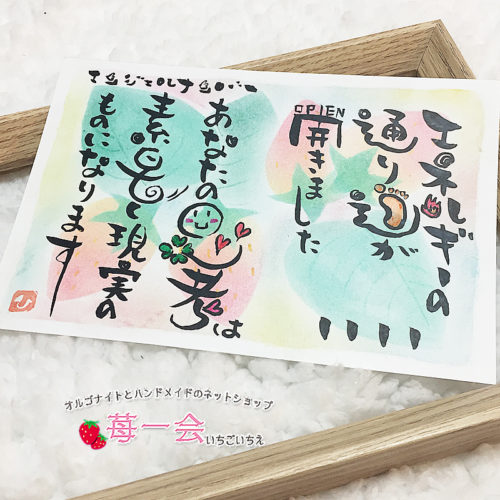 エンジェルナンバー
エネルギーの
通り道が
OPEN
開きました
1111
あなたの思考は
素早く現実の
ものになります
オルゴナイトとハンドメイドのネットショップ
苺一会いちごいちえ